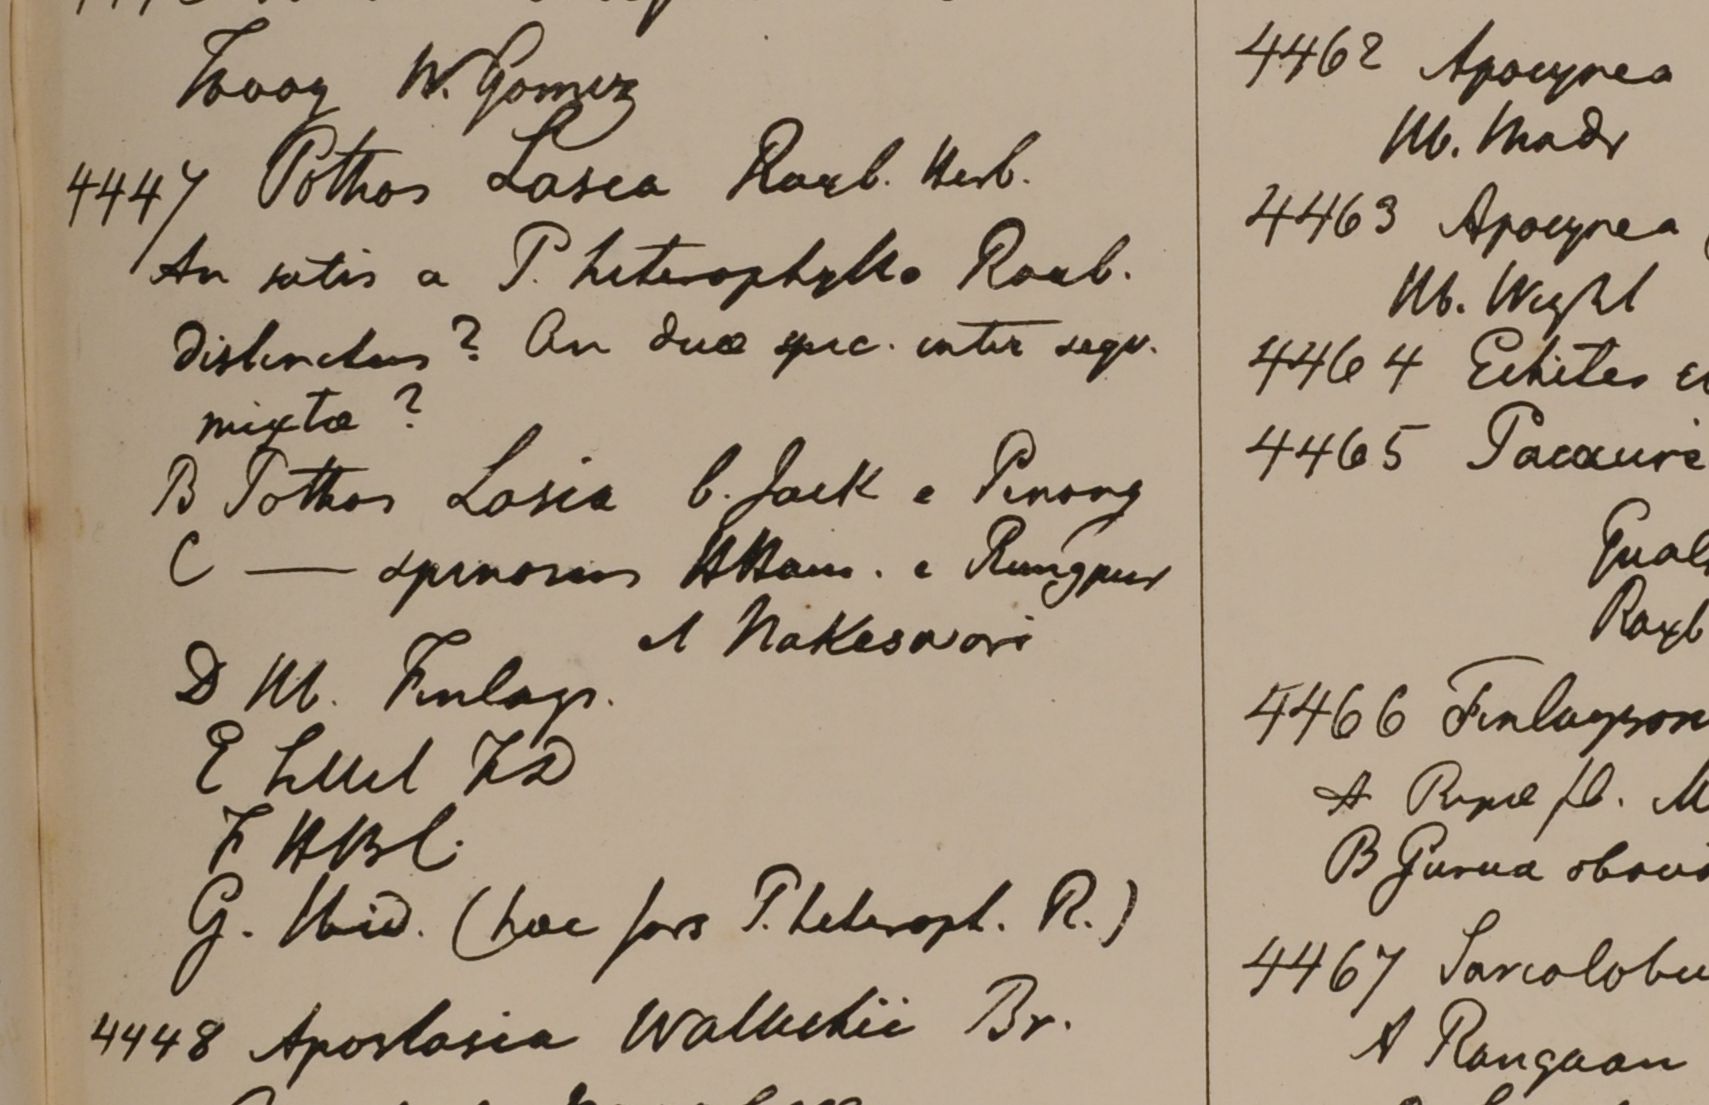 Tavoy W. Gomez
4447 Pothos Lasia Roxb. Herb.
An satis a P. heterophyllo Roxb.
distinctus? An duæ spec. inter sequ.
mixtæ?
B Pothos Lasia b. Jack e Penang
C — spinosus HHam. e Rungpur
et Nakeswori
D Hb. Finlays.
E Silhet FD
F HBC.
G. Ibid. (hæc fors P. heteroph. R.)
4448 Apostasia Wallichii Br.
4462 Apocynea
Hb. Madr
4463 Apocynea
Hb. Wight
4464 Echites
4465 Pacouri
Gual
Roxb
4466 Finlayson
A Ripæ fl. M
B Gurua
4467 Sarcolobu
A Rangoon